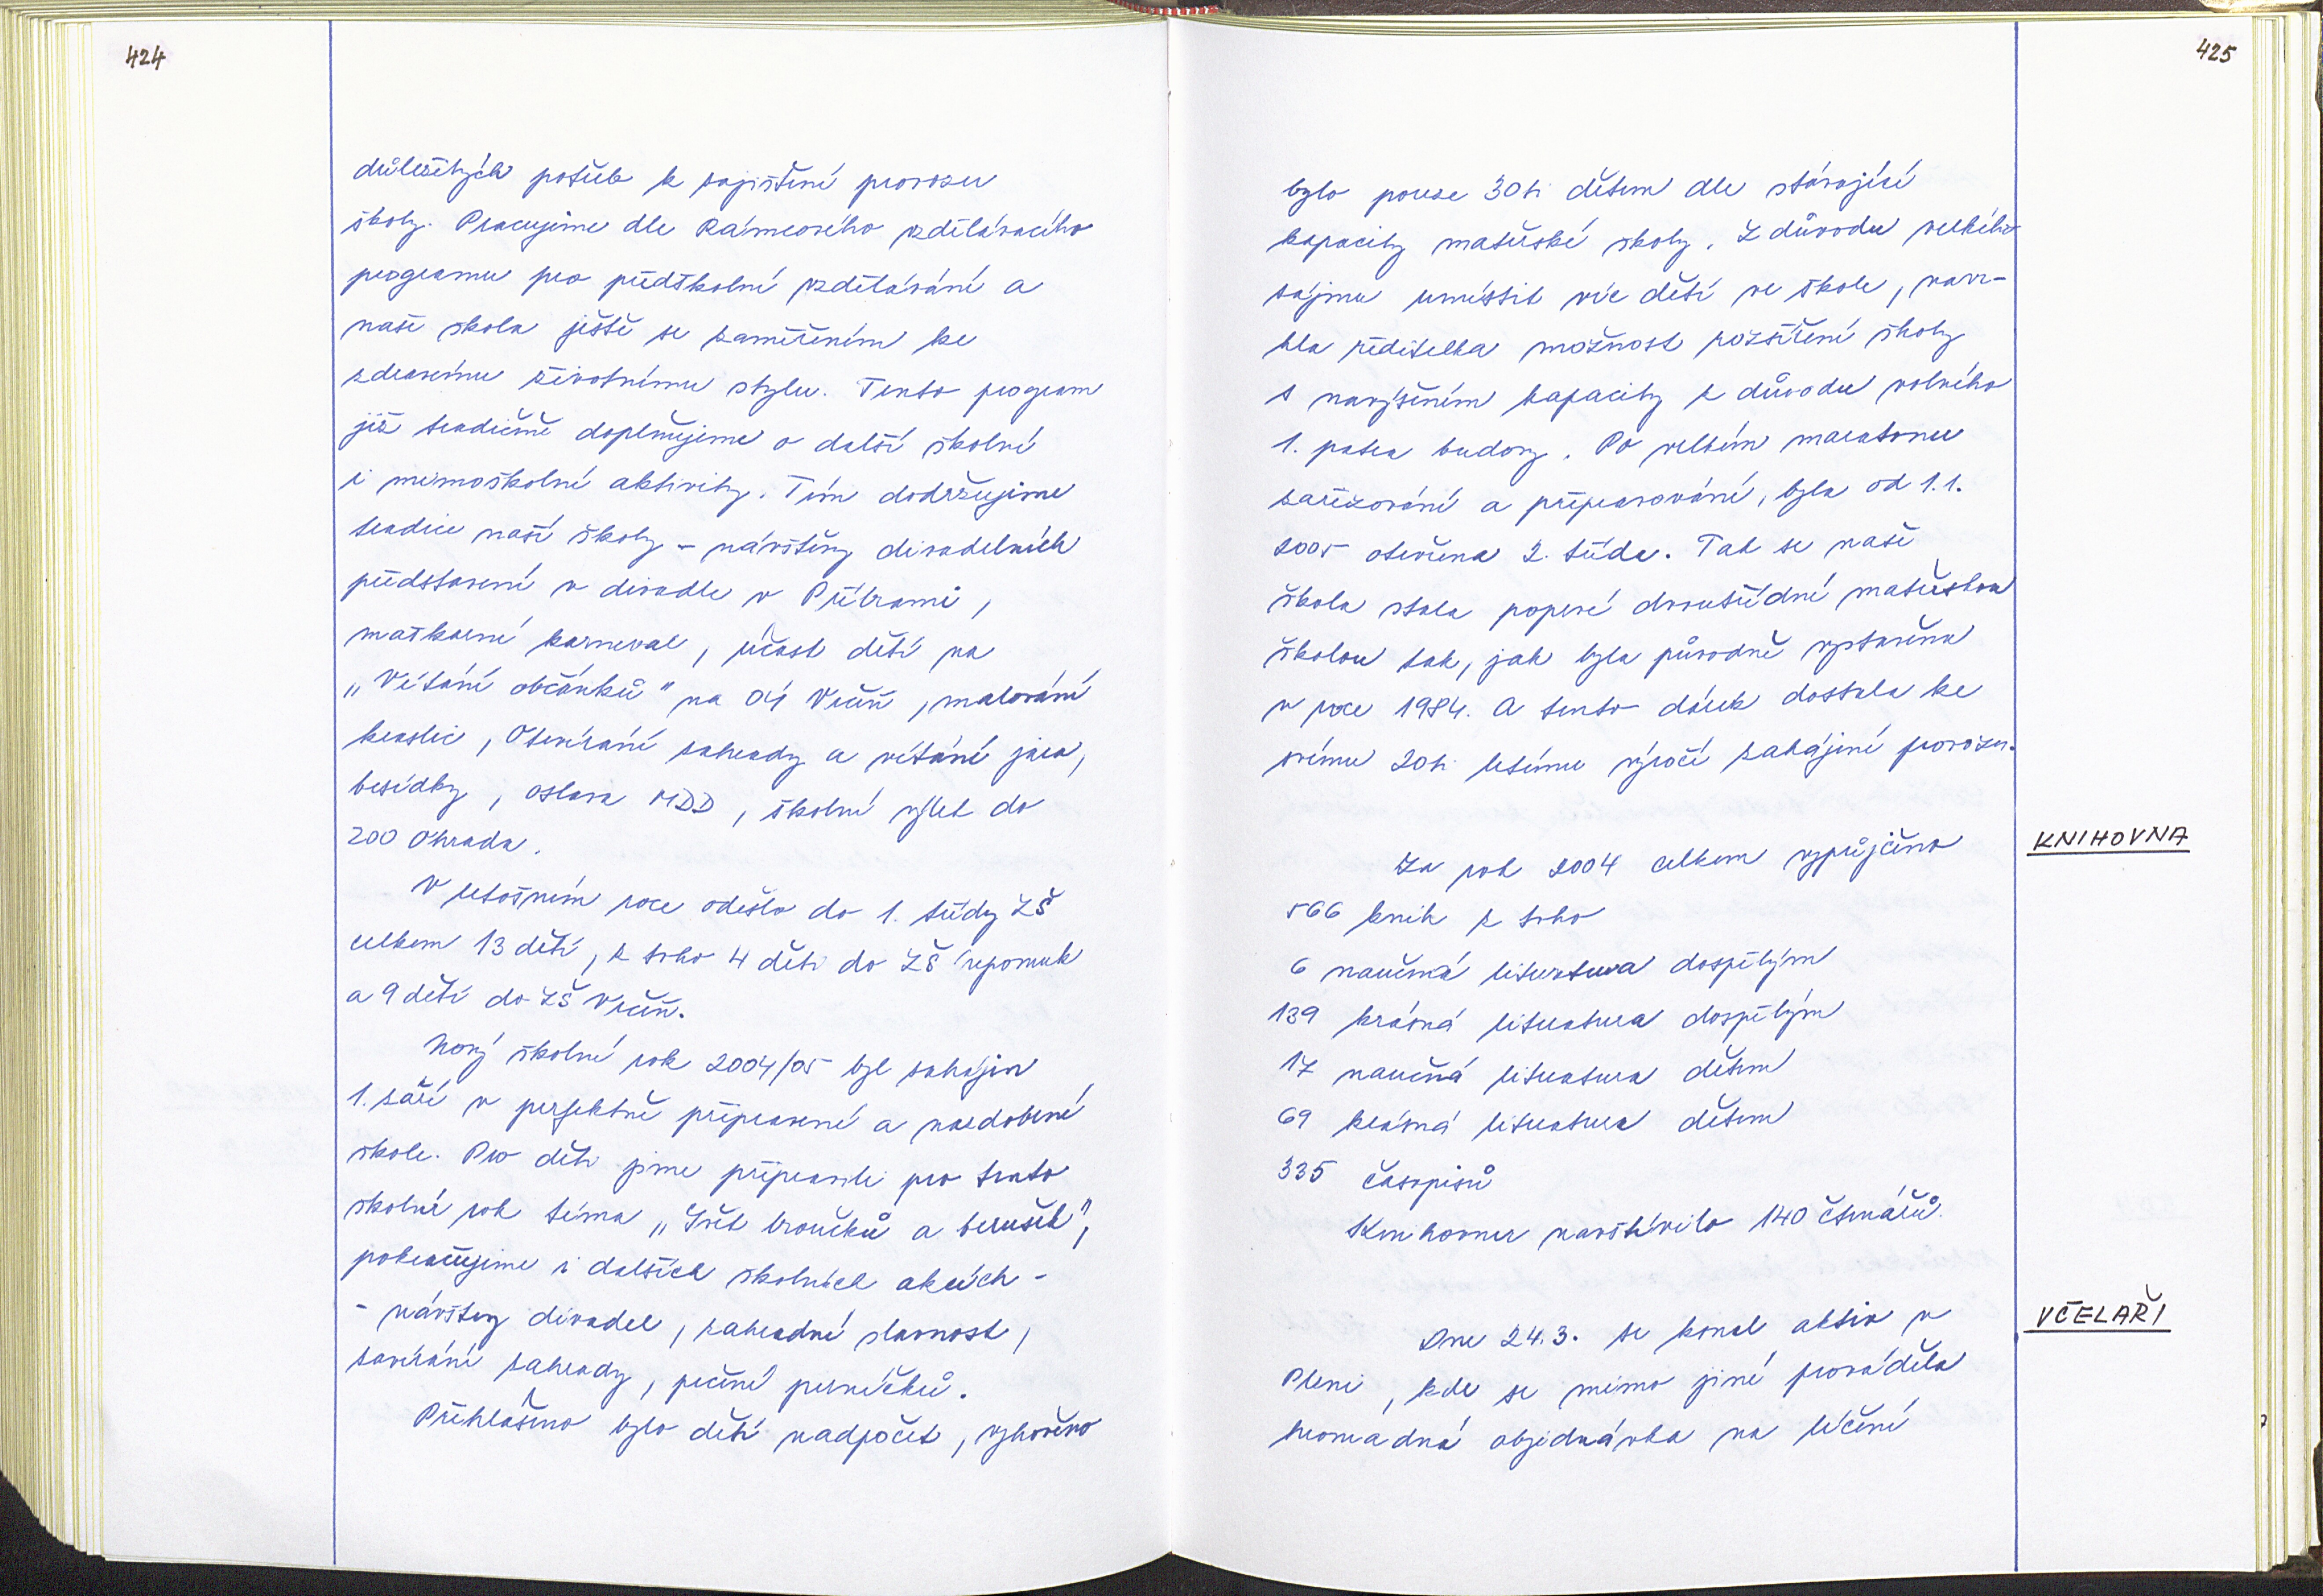 424
důležitých potřeb k zajištění provozu
školy. Pracujeme dle Rámcového vzdělávacího
programu pro předškolní vzdělávání a
naše škola ještě se zaměřením ke
zdravému životnímu stylu. Tento program
již tradičně doplňujeme o další školní
i mimoškolní aktivity. Tím dodržujeme
tradice naší školy – návštěvy divadelních
představení v divadle v Příbrami,
maškarní karneval, účast dětí na
„Vítání občánků" na OÚ Vrčeň, malování
kraslic, Otevírání zahrady a vítání jara,
besídky, oslava MDD, školní výlet do
ZOO Ohrada.
V letošním roce odešlo do 1. třídy ZŠ
celkem 13 dětí, z toho 4 děti do ZŠ Nepomuk
a 9 dětí do ZŠ Vrčeň.
Nový školní rok 2004/05 byl zahájen
1. září v perfektně připravené a nazdobené
škole. Pro děti jsme připravili pro tento
školní rok téma „Svět broučků a berušek",
pokračujeme i dalších školních akcích –
– návštěvy divadel, zahradní slavnost,
zavírání zahrady, pečení perníčků.
Přihlášeno bylo dětí nadpočet, vyhověno
425
bylo pouze 30ti dětem dle stávající
kapacity mateřské školy. Z důvodu velkého
zájmu umístit víc dětí ve škole, navr-
hla ředitelka možnost rozšíření školy
s navýšením kapacity z důvodu volného
1. patra budovy. Po velkém maratonu
zařizování a připravování, byla od 1.1.
2005 otevřena 2. třída. Tak se naše
škola stala poprvé dvoutřídní mateřskou
školou tak, jak byla původně vystavěna
v roce 1984. A tento dárek dostala ke
svému 20ti letému výročí zahájení provozu.
KNIHOVNA
Za rok 2004 celkem vypůjčeno
566 knih z toho
6 naučná literatura dospělým
139 krásná literatura dospělým
17 naučná literatura dětem
69 krásná literatura dětem
335 časopisů
Knihovnu navštívilo 140 čtenářů.
VČELAŘI
Dne 24.3. se konal aktiv v
Plzni, kde se mimo jiné prováděla
hromadná objednávka na léčení